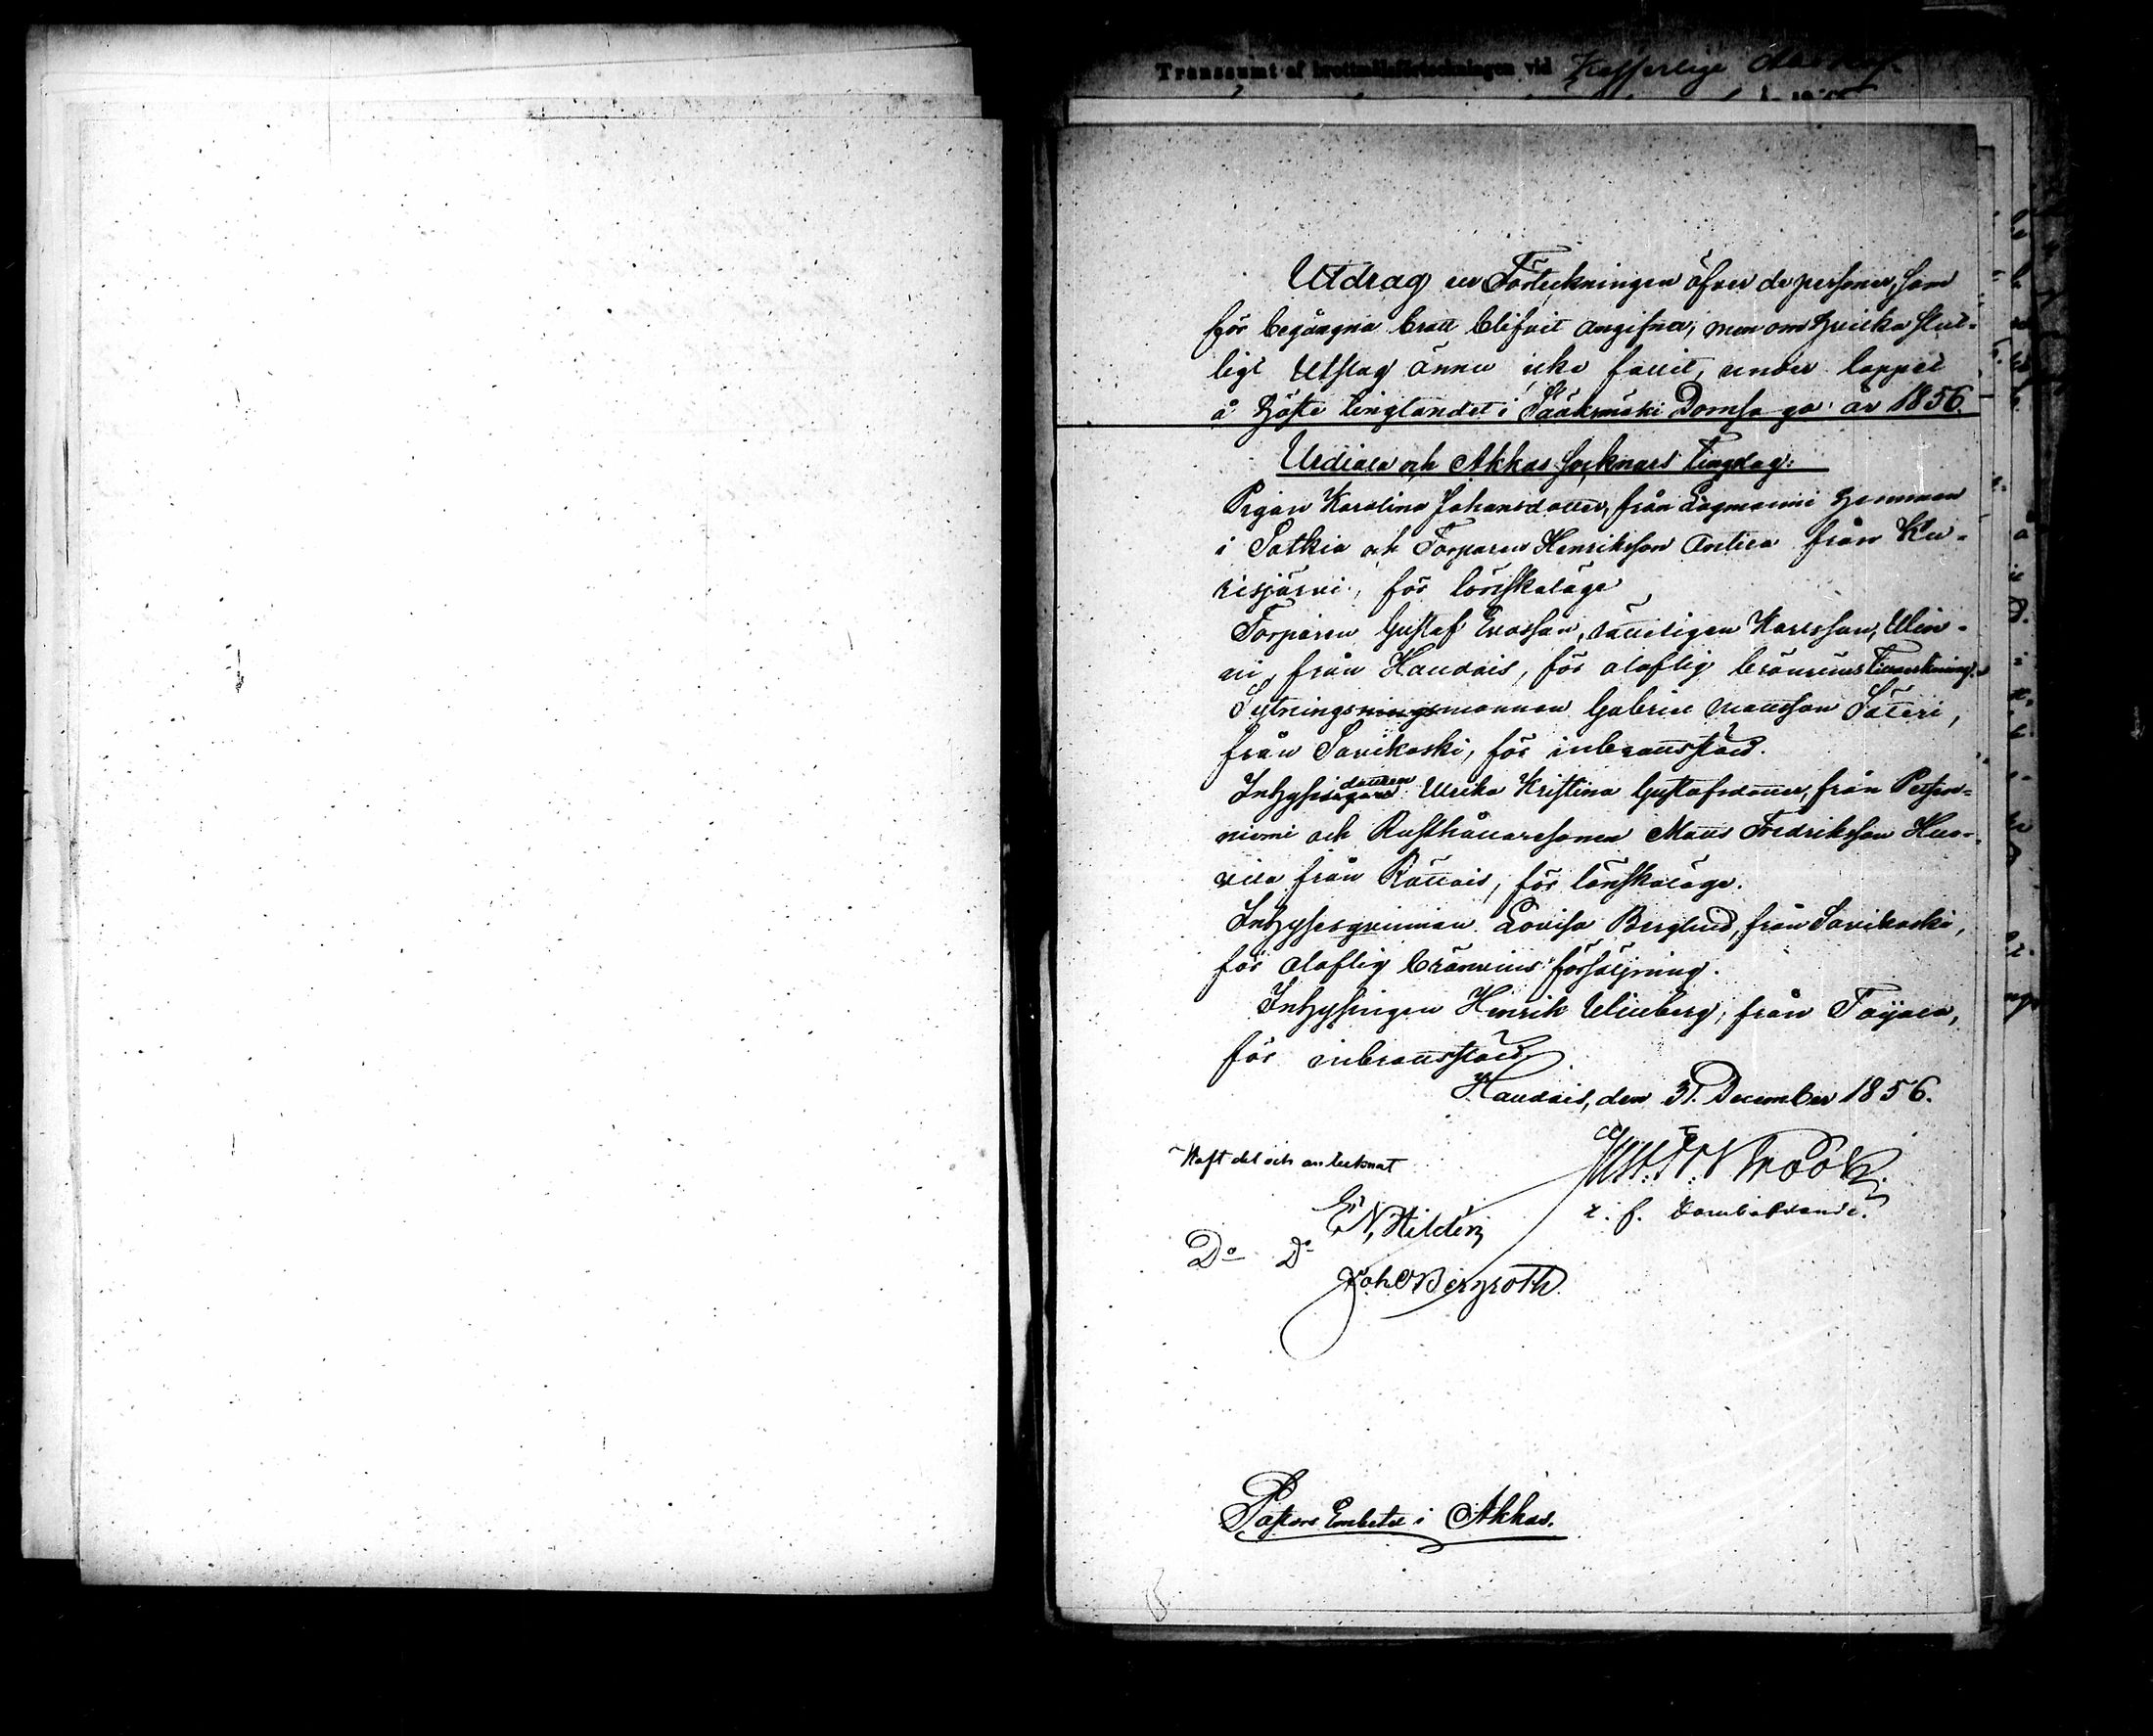 Transsumt af brottmålsförteckningen vid Kejserlige
Utdrag ur Förteckningen öfver de personer, som
för begångna brott blifvit angifna, men om hvilka slut-
ligt Utslag ännu icke fallit, under loppet
å Höste tinglandet i Sääksmäki Domsaga år 1856.
Urdiala och Akkas Socknars Tingslag:
Pigan Karolina Johansdotter, från Lagmanni hemman
i Sotkia och Torparen Henriksson Anttila från Ku-
risjärvi, för lönskaläge
Torparen Gustaf Evasson, rätteligen Karlsson, Ulin-
ni, från Haudais, för olaflig bränvins tillverkning.
Sytningsningsmannen Gabriel Mattsson Säteri,
från Savikoski, för inbrottsstöld.
Inhysesdottren Ulrika Kristina Gustafsdotter, från Pethin-
niemi och Rusthållaresonen Matts Fredriksson Huo-
vila från Rättais, för lönskaläge.
Inhysesqvinnan Lovisa Berglund, från Savikoski,
för olaflig bränvins försäljning.
Inhysingen Henrik Ulinberg, från Toijala,
för inbrottsstöld.
Haudais, den 31. December 1856.
Haft del och antecknat
t. f. Domhafvande.
E. N. Hildén
Do Do
Joh. Bergroth
Pastors Embetet i Akkas.